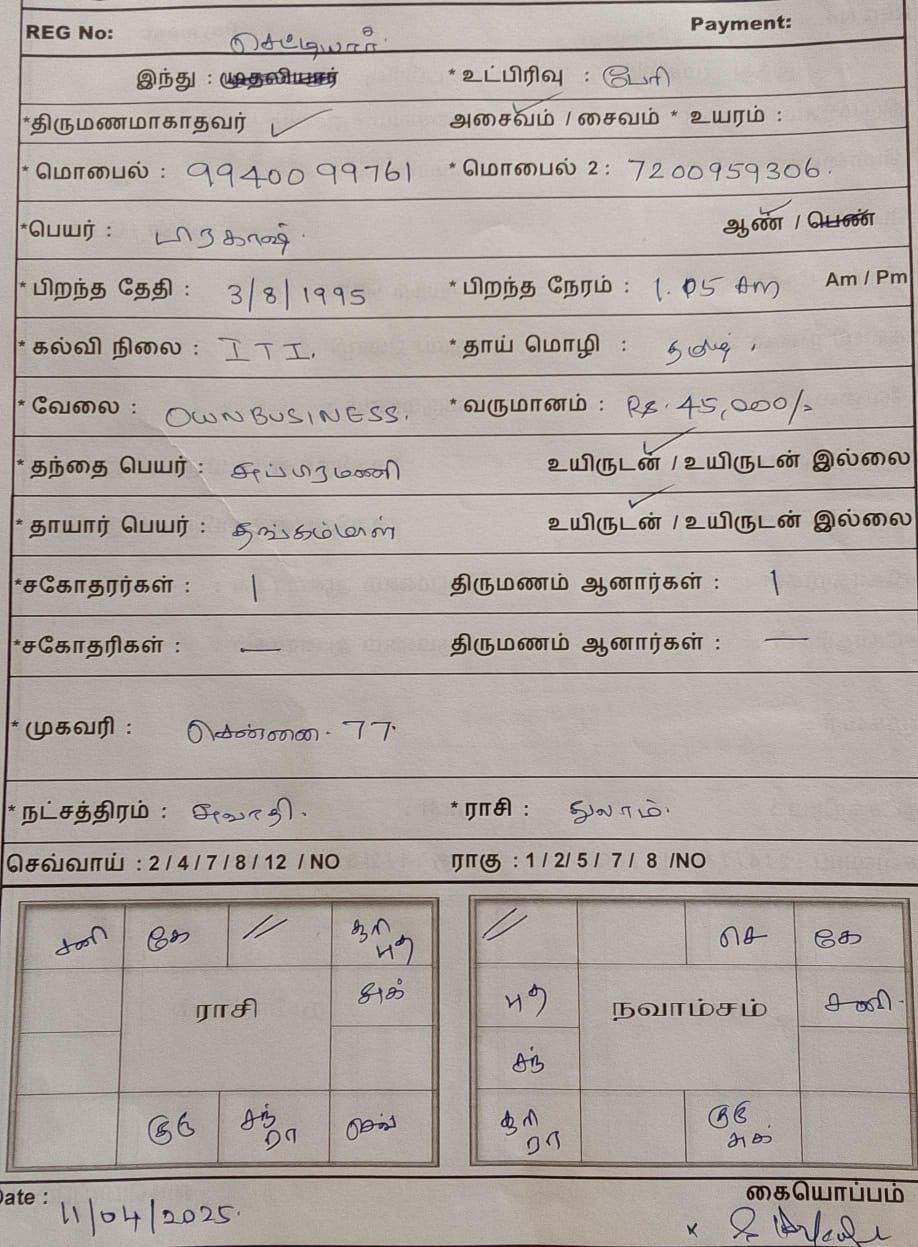 REG No: Payment:
செட்டியார்.
இந்து : முதலியார் * உட்பிரிவு : பேரி
*திருமணமாகாதவர் ✓ அசைவம் / சைவம் * உயரம் :
* மொபைல் : 9940099761 * மொபைல் 2: 7200959306.
*பெயர் : பிரகாஷ். ஆண் / பெண்
* பிறந்த தேதி : 3/8/1995 * பிறந்த நேரம் : 1.05 Am Am / Pm
* கல்வி நிலை : ITI. * தாய் மொழி : தமிழ்.
* வேலை : OWN BUSINESS. * வருமானம் : Rs. 45,000/-
* தந்தை பெயர் : சுப்பிரமணி உயிருடன் / உயிருடன் இல்லை
* தாயார் பெயர் : தங்கம்மாள் உயிருடன் / உயிருடன் இல்லை
*சகோதரர்கள் : 1 திருமணம் ஆனார்கள் : 1
*சகோதரிகள் : — திருமணம் ஆனார்கள் : —
* முகவரி : சென்னை. 77.
* நட்சத்திரம் : சுவாதி. * ராசி : துலாம்.
செவ்வாய் : 2 / 4 / 7 / 8 / 12 / NO ராகு : 1 / 2/ 5 / 7 / 8 /NO
சனி கே // சூரி புத // செ கே
சுக் ராசி புத நவாம்சம் சனி.
சந்
குரு சந் ரா செவ் சூரி ரா குரு சுக்
Date : 11/04/2025. கையொப்பம்
x